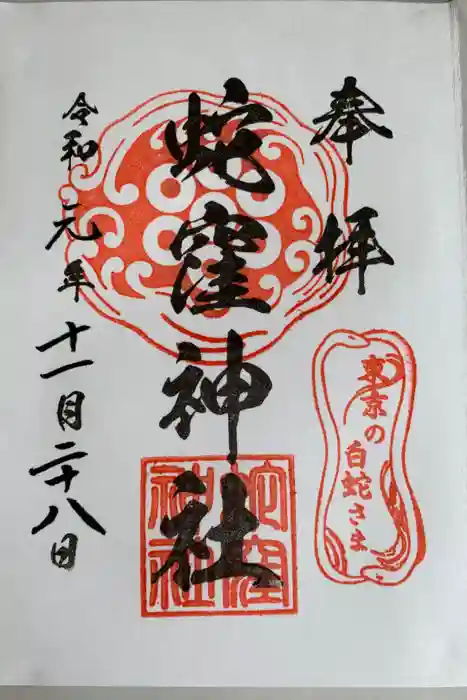 奉拝
東京の
白蛇さま
蛇窪神社
蛇窪
神社
令和元年
十一月二十八日